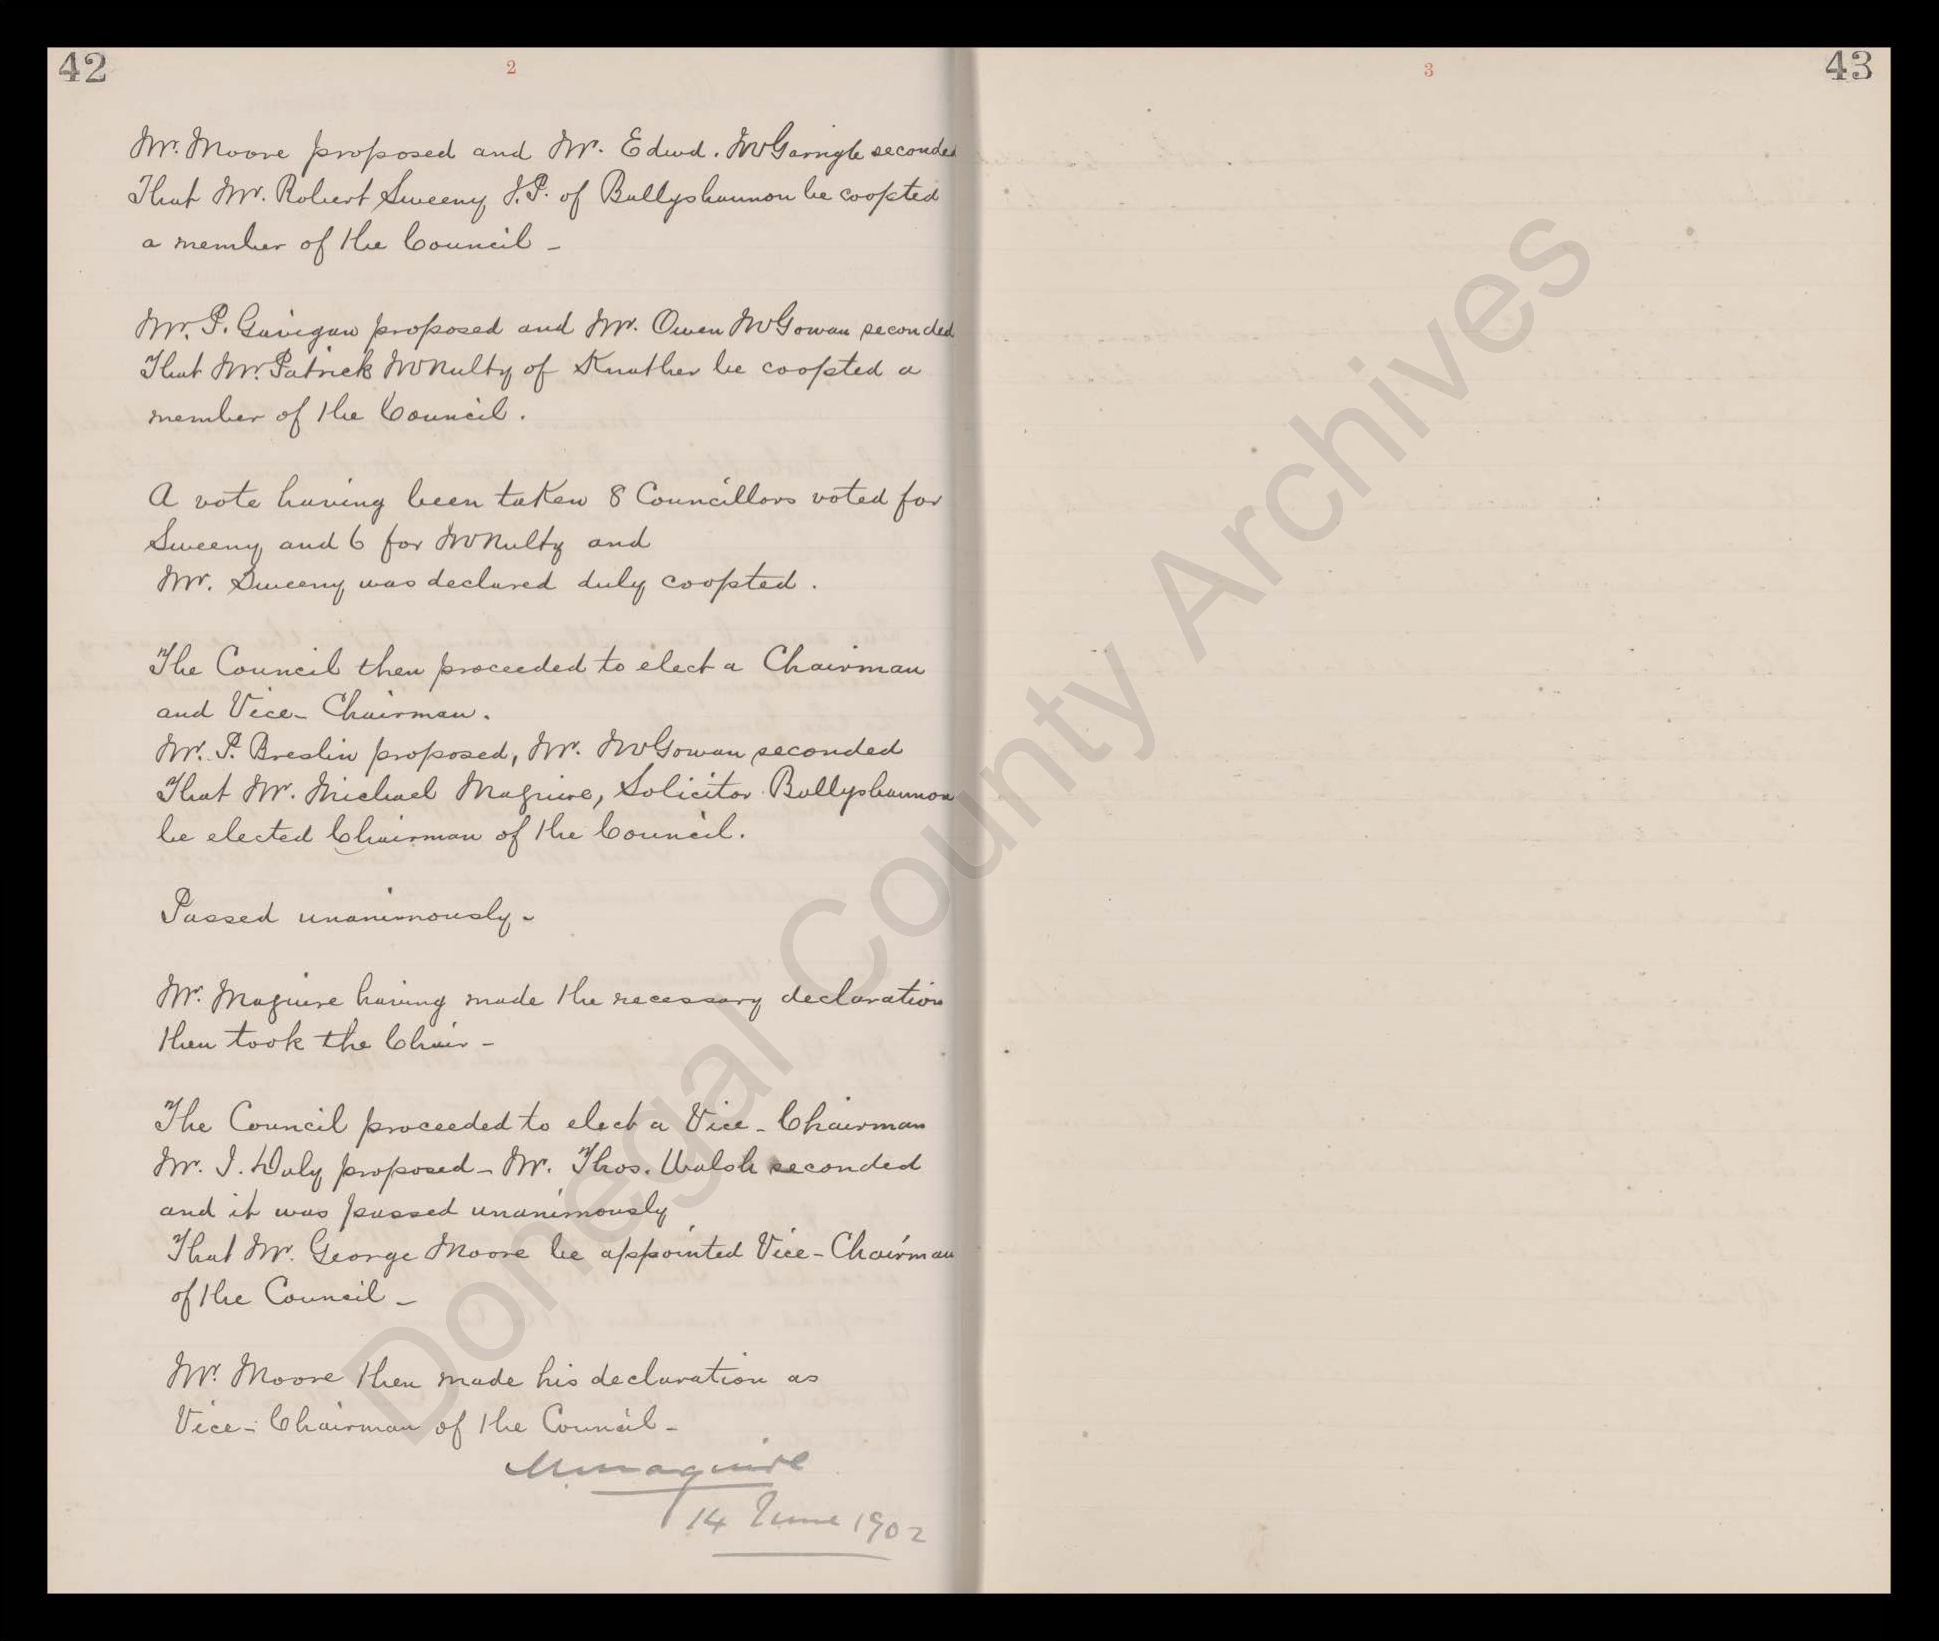 42
2
Mr. Moore proposed and Mr. Edwd. McGarrigle seconded
That Mr. Robert Sweeny J.P. of Ballyshannon be coopted
a member of the Council -
Mr. P. Gavigan proposed and Mr. Owen McGowan seconded
That Mr. Patrick McNulty of Knather be coopted a
member of the Council.
A vote having been taken 8 Councillors voted for
Sweeny and 6 for McNulty and
Mr. Sweeny was declared duly coopted.
The Council then proceeded to elect a Chairman
and Vice-Chairman.
Mr. P. Breslin proposed, Mr. McGowan seconded
That Mr. Michael Maguire, Solicitor Ballyshannon
be elected Chairman of the Council.
Passed unanimously -
Mr. Maguire having made the necessary declaration
then took the Chair -
The Council proceeded to elect a Vice-Chairman
Mr. J. Daly proposed - Mr. Thos. Walsh seconded
and it was passed unanimously
That Mr. George Moore be appointed Vice-Chairman
of the Council -
Mr. Moore then made his declaration as
Vice-Chairman of the Council -
M. Maguire
14 June 1902
3
43
Donegal County Archives